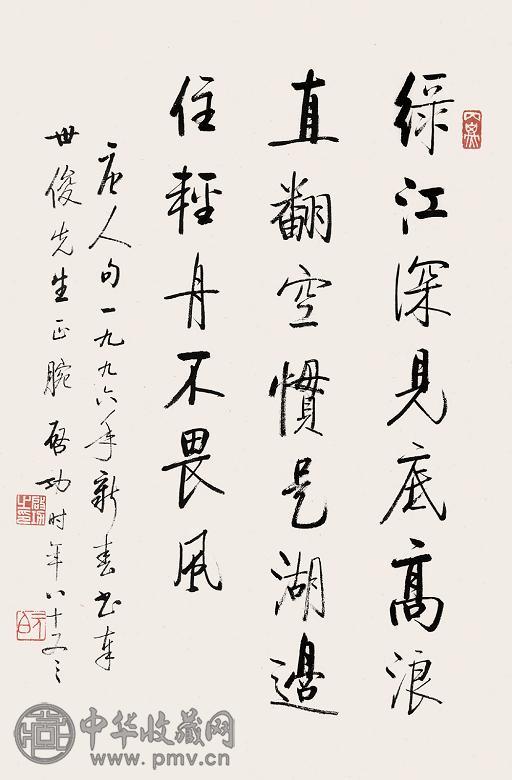 綠江深見底高浪
直翻空慣是湖邊
住輕舟不畏風
唐人句一九九六年新春書奉
世俊先生正腕 啓功時年八十又
元白
中华收藏网
www.pmv.cn